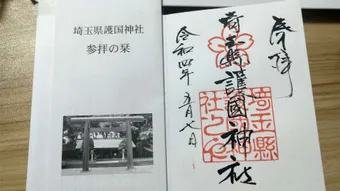 埼玉県護国神社
参拝の栞
奉拝
埼玉縣護國神社
令和四年五月七日
埼玉縣
護國神
社之印